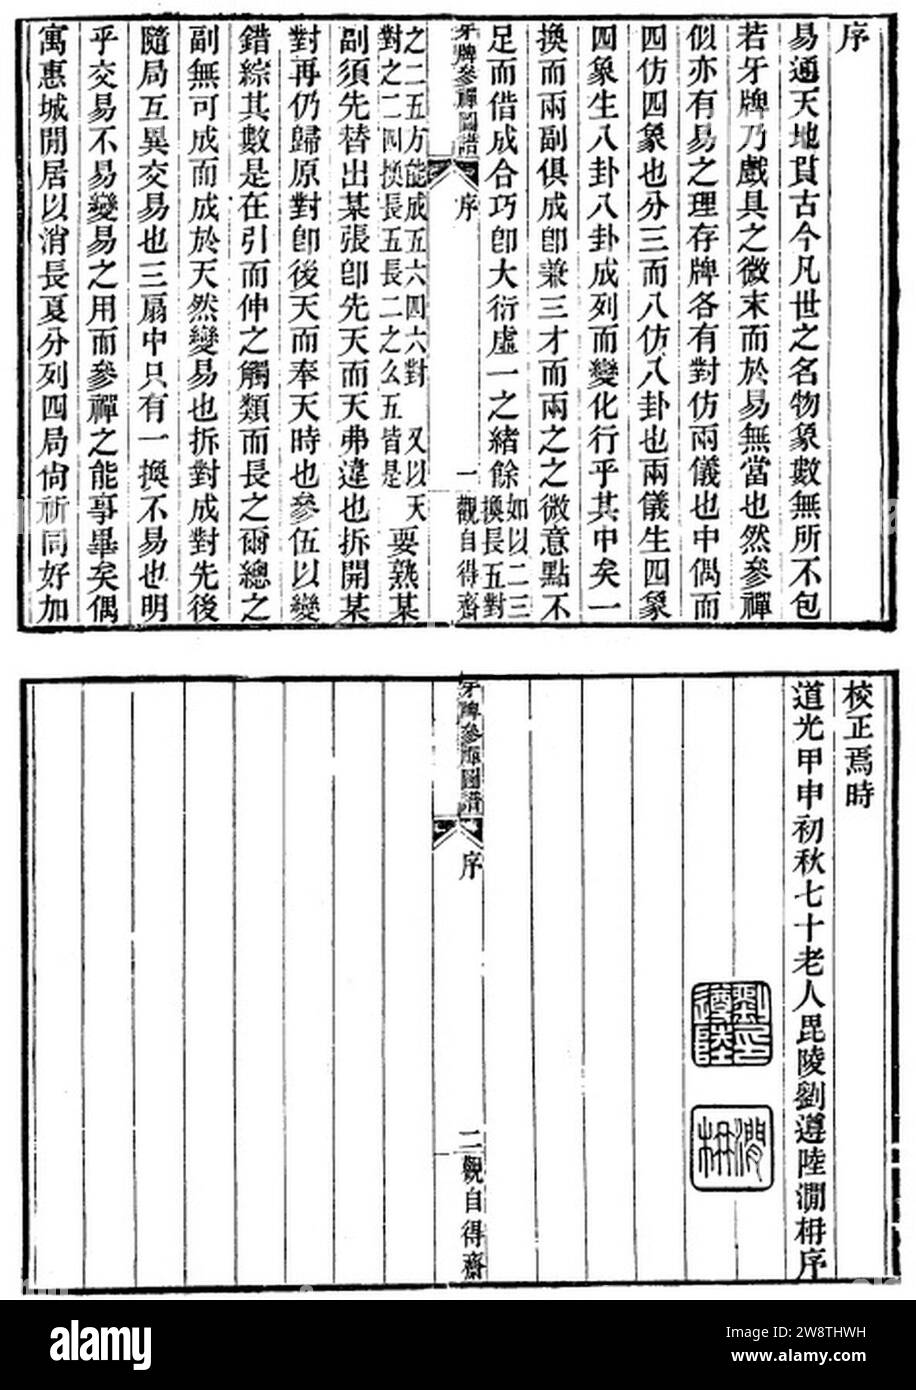 序
易通天地貫古今凡世之名物象數無所不包
若牙牌乃戲具之微末而於易無當也然參禪
似亦有易之理存牌各有對仿兩儀也中偶而
四仿四象也分三而八仿八卦也兩儀生四象
四象生八卦八卦成列而變化行乎其中矣一
換而兩副俱成卽兼三才而兩之之微意點不
足而借成合巧卽大衍虛一之緒餘如以二三
換長五對
牙牌參禪圖譜
序
一
觀自得齋
之二五方能成五六四六對 又以天
對之二四換長五長二之么五皆是
要熟某
副須先替出某張卽先天而天弗違也拆開某
對再仍歸原對卽後天而奉天時也參伍以變
錯綜其數是在引而伸之觸類而長之爾總之
副無可成而成於天然變易也拆對成對先後
隨局互異交易也三扇中只有一換不易也明
乎交易不易變易之用而參禪之能事畢矣偶
寓惠城閒居以消長夏分列四局尙祈同好加
校正焉時
道光甲申初秋七十老人毘陵劉遵陸澗柟序
劉印
遵陸
澗
柟
牙牌參禪圖譜
序
二
觀自得齋
alamy
Image ID: 2W8THWH
www.alamy.com